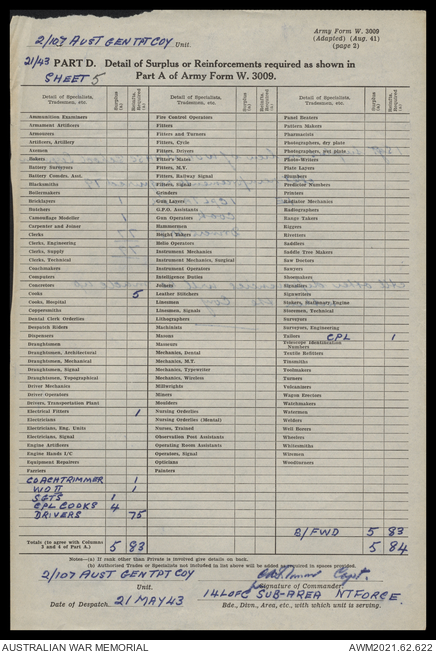 Army Form W. 3009
(Adapted) (Aug. 41)
(page 2)
2/107 AUST GEN TPT COY Unit.
21/43 PART D. Detail of Surplus or Reinforcements required as shown in
Part A of Army Form W. 3009.
SHEET 5
Detail of Specialists, Tradesmen, etc. Surplus (a) Reinfts. Required (a) Detail of Specialists, Tradesmen, etc. Surplus (a) Reinfts. Required (a) Detail of Specialists, Tradesmen, etc. Surplus (a) Reinfts. Required (a)
Ammunition Examiners
Armament Artificers
Armourers
Artificers, Artillery
Axemen
Bakers
Battery Surveyors
Battery Comdrs. Asst.
Blacksmiths
Boilermakers
Bricklayers
Butchers
Camouflage Modeller
Carpenter and Joiner
Clerks
Clerks, Engineering
Clerks, Supply
Clerks, Technical
Coachmakers
Computers
Concretors
Cooks 5
Cooks, Hospital
Coppersmiths
Dental Clerk Orderlies
Despatch Riders
Dispensers
Draughtsmen
Draughtsmen, Architectural
Draughtsmen, Mechanical
Draughtsmen, Signal
Draughtsmen, Topographical
Driver Mechanics
Driver Operators
Drivers, Transportation Plant
Electrical Fitters 1
Electricians
Electricians, Eng. Units
Electricians, Signal
Engine Artificers
Engine Hands I/C
Equipment Repairers
Farriers
COACHTRIMMER 1
W.O II 1
SGTS 1
CPL COOKS 4
DRIVERS 75
Totals (to agree with Columns
3 and 4 of Part A.) 5 83
Fire Control Operators
Fitters
Fitters and Turners
Fitters, Cycle
Fitters, Drivers
Fitters' Mates
Fitters, M.V.
Fitters, Railway Signal
Fitters, Signal
Grinders
Gun Layers
G.P.O. Assistants
Gun Operators
Hammermen
Height Takers
Helio Operators
Instrument Mechanics
Instrument Mechanics, Surgical
Instrument Operators
Intelligence Duties
Joiners
Leather Stitchers
Linesmen
Linesmen, Signals
Lithographers
Machinists
Masons
Masseurs
Mechanics, Dental
Mechanics, M.T.
Mechanics, Typewriter
Mechanics, Wireless
Millwrights
Miners
Moulders
Nursing Orderlies
Nursing Orderlies (Mental)
Nurses, Trained
Observation Post Assistants
Operating Room Assistants
Operators, Signal
Opticians
Painters
Panel Beaters
Pattern Makers
Pharmacists
Photographers, dry plate
Photographers, wet plate
Photo-Writers
Plate Layers
Plumbers
Predictor Numbers
Printers
Radiator Mechanics
Radiographers
Range Takers
Riggers
Rivetters
Saddlers
Saddle Tree Makers
Saw Doctors
Sawyers
Shoemakers
Signallers
Signwriters
Stokers, Stationary Engine
Storemen, Technical
Surveyors
Surveyors, Engineering
Tailors CPL 1
Telescope Identification
Numbers
Textile Refitters
Tinsmiths
Toolmakers
Turners
Vulcanisers
Wagon Erectors
Watchmakers
Watermen
Welders
Well Borers
Wheelers
Whitesmiths
Wiremen
Woodturners
B/FWD 5 83
5 84
Notes—(a) If rank other than Private is involved give details on back.
(b) Authorised Trades or Specialists not included in list above will be added as required in spaces provided.
2/107 AUST GEN TPT COY
Unit. Signature of Commander.
Capt.
Date of Despatch 21 MAY 43 14 LOFC SUB-AREA NT FORCE
Bde., Divn., Area, etc., with which unit is serving.
AUSTRALIAN WAR MEMORIAL AWM2021.62.622